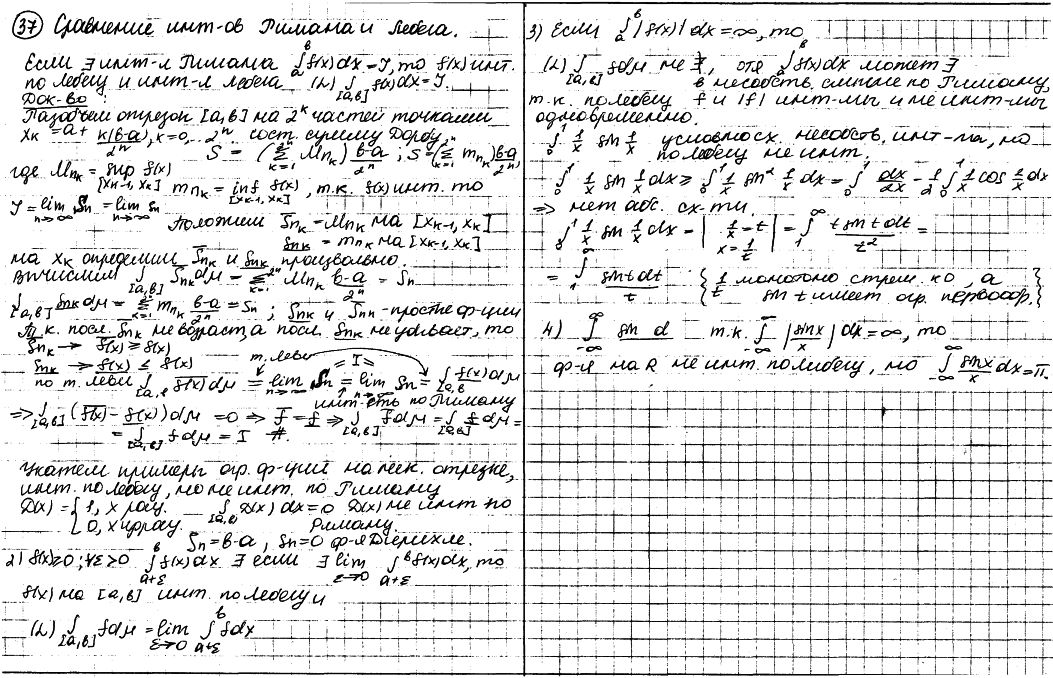 37 Сравнение инт-ов Римана и Лебега.
Если ∃ инт-л Римана ∫_a^b f(x)dx = J, то f(x) инт.
по Лебегу и инт-л Лебега (L) ∫_[a,b] f(x)dx = J.
Док-во:
Разобьем отрезок [a,b] на 2^n частей точками
x_k = a + k(b-a)/2^n, k=0,..2^n сост. сумму Дарбу,
S = (Σ_{k=1}^{2^n} M_nk) (b-a)/2^n ; S = (Σ_{k=1}^{2^n} m_nk) (b-a)/2^n,
где M_nk = sup_[x_k-1, x_k] f(x) m_nk = inf_[x_k-1, x_k] f(x), т.к. f(x) инт. то
J = lim_{n→∞} S̄n = lim_{n→∞} sn
Положим S̄_nk = M_nk на [x_k-1, x_k]
s_nk = m_nk на [x_k-1, x_k]
на x_k определим S̄_nk и s_nk произвольно.
Вычислим ∫_[a,b] S̄_nk dμ = Σ_{k=1}^{2^n} M_nk (b-a)/2^n = Sn
∫_[a,b] s_nk dμ = Σ_{k=1}^{2^n} m_nk (b-a)/2^n = Sn ; s_nk и S̄_nn - простые ф-ции
Т.к. посл. S̄_nk не возраст, а посл. s_nk не убывает, то
S̄_nk → f̄(x) ≥ f(x)
s_nk → f(x) ≤ f(x)
т. Леви = I =
по т. Леви ∫_[a,b] f̄(x) dμ = lim_{n→∞} S̄n = lim_{n→∞} Sn = ∫_[a,b] f(x) dμ
инт-сть по Риману
=> ∫_[a,b] (f̄(x) - f(x)) dμ = 0 => f̄ = f => ∫_[a,b] f dμ = ∫_[a,b] f dμ =
= ∫_[a,b] f dμ = I #.
Укажем примеры огр. ф-ций на нек. отрезке,
инт. по Лебегу, но не инт. по Риману
D(x) = { 1, x рац. ∫_[a,b] D(x) dx = 0 D(x) не инт по
0, x иррац. Риману.
S̄n = b-a, sn = 0 ф-я Дирихле.
2) f(x)≥0; ∀ε>0 ∫_{a+ε}^b f(x)dx ∃ если ∃ lim_{ε→0} ∫_{a+ε}^b f(x)dx, то
f(x) на [a,b] инт. по Лебегу и
(L) ∫_[a,b] f dμ = lim_{ε→0} ∫_{a+ε}^b f dx
3) Если ∫_a^b |f(x)| dx = ∞, то
(L) ∫_[a,b] f dμ не ∃, отя ∫_a^b f(x)dx может ∃
в несобств. смысле по Риману,
т.к. по Лебегу f и |f| инт-мы и не инт-мы
одновременно.
∫_0^1 1/x sin 1/x условно сх. несобств. инт-ла, но
по Лебегу не инт.
∫_0^1 1/x sin 1/x dx ≥ ∫_0^1 1/x sin² 1/x dx = ∫_0^1 dx/2x - 1/2 ∫_0^1 1/x cos 2/x dx
=> нет абс. сх-ти.
∫_0^1 1/x sin 1/x dx = | 1/x = t x = 1/t | = ∫_1^∞ t sin t dt / t² =
= ∫_1^∞ sin t dt / t { 1/t монотонно стрем. к 0, а
sin t имеет огр. первообр. }
4) ∫_{-∞}^∞ sin d т.к. ∫_{-∞}^∞ |sin x / x| dx = ∞, то
ф-я на R не инт. по Лебегу, но ∫_{-∞}^∞ sin x / x dx = π.